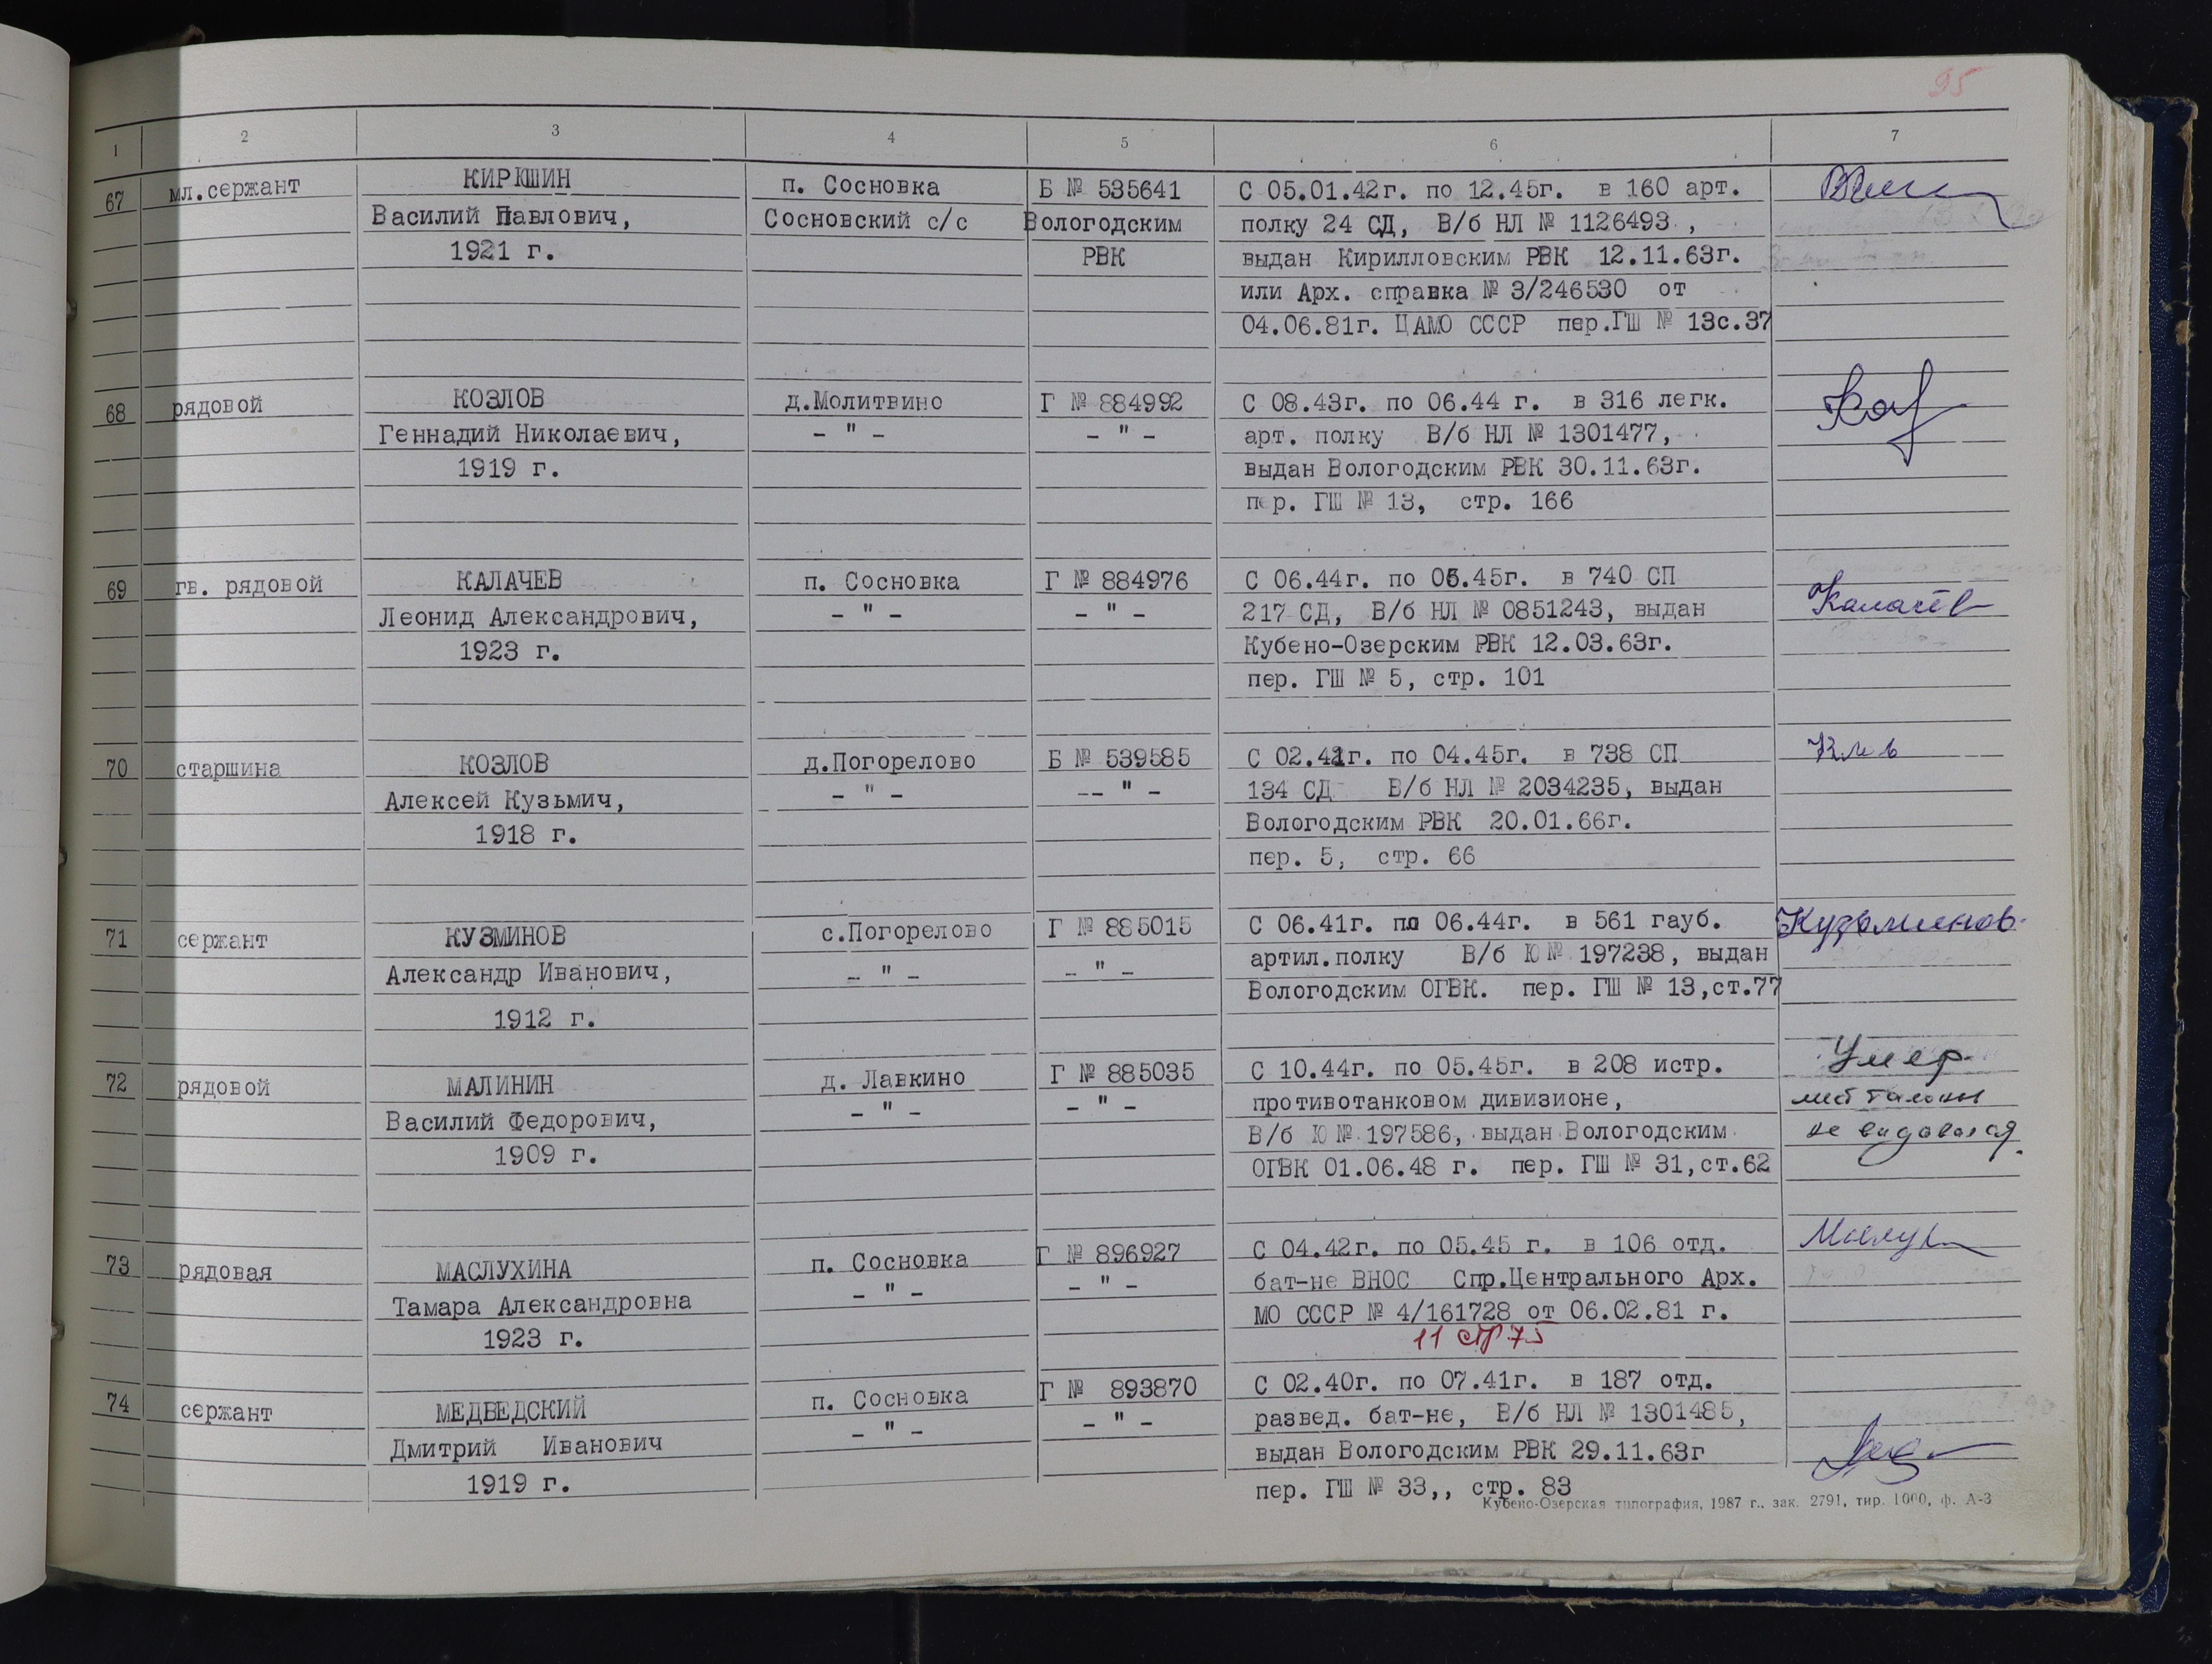 95
1 2 3 4 5 6 7
67 мл.сержант КИРКШИН п. Сосновка Б № 535641 С 05.01.42г. по 12.45г. в 160 арт.
Василий Павлович, Сосновский с/с Вологодским полку 24 СД, В/б НЛ № 1126493 ,
1921 г. РВК выдан Кирилловским РВК 12.11.63г.
или Арх. справка № 3/246530 от
04.06.81г. ЦАМО СССР пер.ГШ № 13с.37
68 рядовой КОЗЛОВ д.Молитвино Г № 884992 С 08.43г. по 06.44 г. в 316 легк.
Геннадий Николаевич, - " - - " - арт. полку В/б НЛ № 1301477,
1919 г. выдан Вологодским РВК 30.11.63г.
пер. ГШ № 13, стр. 166
69 гв. рядовой КАЛАЧЕВ п. Сосновка Г № 884976 С 06.44г. по 05.45г. в 740 СП
Леонид Александрович, - " - - " - 217 СД, В/б НЛ № 0851243, выдан Калачёв
1923 г. Кубено-Озерским РВК 12.03.63г.
пер. ГШ № 5, стр. 101
70 старшина КОЗЛОВ д.Погорелово Б № 539585 С 02.42г. по 04.45г. в 738 СП
Алексей Кузьмич, - " - -- " - 134 СД В/б НЛ № 2034235, выдан
1918 г. Вологодским РВК 20.01.66г.
пер. 5, стр. 66
71 сержант КУЗМИНОВ с.Погорелово Г № 885015 С 06.41г. по 06.44г. в 561 гауб. Кузьминов
Александр Иванович, - " - - " - артил.полку В/б Ю № 197238, выдан
1912 г. Вологодским ОГВК. пер. ГШ № 13,ст.77
72 рядовой МАЛИНИН д. Лавкино Г № 885035 С 10.44г. по 05.45г. в 208 истр. Умер
Василий Федорович, - " - - " - противотанковом дивизионе, талоны
1909 г. В/б Ю № 197586, выдан Вологодским не
ОГВК 01.06.48 г. пер. ГШ № 31,ст.62
73 рядовая МАСЛУХИНА п. Сосновка Г № 896927 С 04.42г. по 05.45 г. в 106 отд.
Тамара Александровна - " - - " - бат-не ВНОС Спр.Центрального Арх.
1923 г. МО СССР № 4/161728 от 06.02.81 г.
11 стр 75
74 сержант МЕДВЕДСКИЙ п. Сосновка Г № 893870 С 02.40г. по 07.41г. в 187 отд.
Дмитрий Иванович - " - - " - развед. бат-не, В/б НЛ № 1301485,
1919 г. выдан Вологодским РВК 29.11.63г
пер. ГШ № 33,, стр. 83
Кубено-Озерская типография, 1987 г.. зак. 2791, тир. 1000, ф. А-3